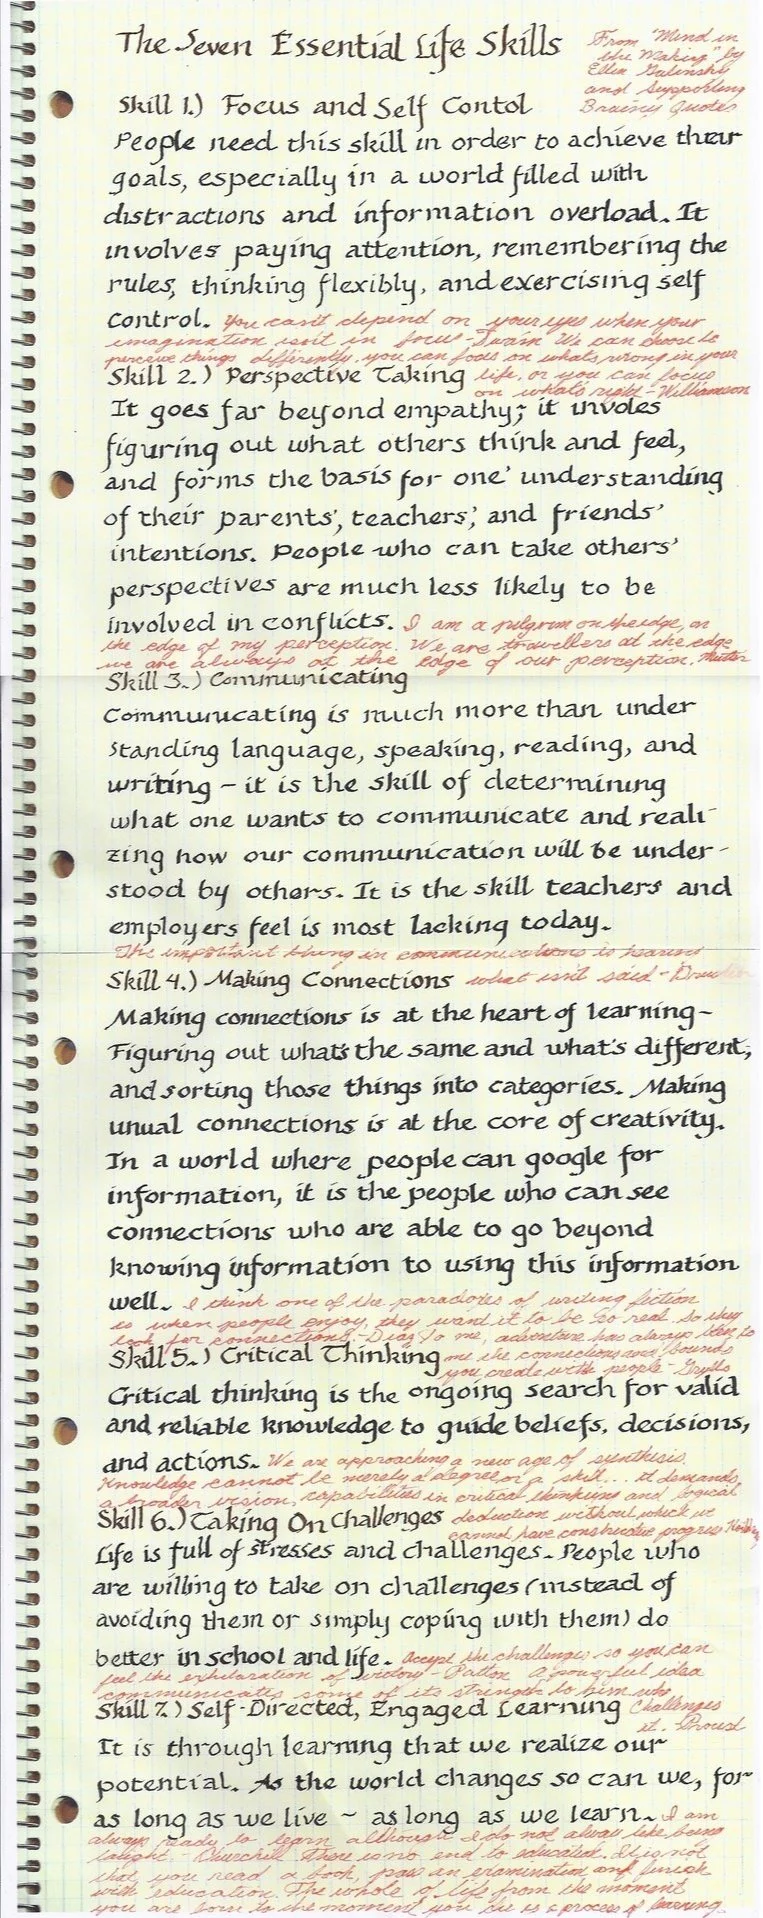 The Seven Essential Life Skills
From "Mind in
the Making" by
Ellen Galinsky
and Supporting
Brainy Quotes
Skill 1.) Focus and Self Contol
People need this skill in order to achieve their
goals, especially in a world filled with
distractions and information overload. It
involves paying attention, remembering the
rules, thinking flexibly, and exercising self
control. You can't depend on your eyes when your
imagination isn't in focus - Twain We can choose to
perceive things differently, you can focus on what's wrong in your
Skill 2.) Perspective Taking life, or you can focus
on what's right - Williamson
It goes far beyond empathy; it involes
figuring out what others think and feel,
and forms the basis for one' understanding
of their parents', teachers', and friends'
intentions. People who can take others'
perspectives are much less likely to be
involved in conflicts. I am a pilgrim on the edge, on
the edge of my perception. We are travellers at the edge
we are always at the edge of our perception.
Skill 3.) Communicating
Communicating is much more than under
standing language, speaking, reading, and
writing - it is the skill of determining
what one wants to communicate and reali-
zing how our communication will be under-
stood by others. It is the skill teachers and
employers feel is most lacking today.
The important thing in communications is hearing
Skill 4.) Making Connections what isn't said -
Making connections is at the heart of learning-
Figuring out what's the same and what's different,
and sorting those things into categories. Making
unual connections is at the core of creativity.
In a world where people can google for
information, it is the people who can see
connections who are able to go beyond
knowing information to using this information
well. I think one of the paradoxes of writing fiction
is when people enjoy, they want it to be so real so they
look for connections. - Diaz To me, adventure has always been to
Skill 5.) Critical Thinking me the connections and bounds
you create with people - Grylls
Critical thinking is the ongoing search for valid
and reliable knowledge to guide beliefs, decisions,
and actions. We are approaching a new age of synthesis.
Knowledge cannot be merely a degree or a skill... it demands
a broader vision, capabilities in critical thinking and logical
Skill 6.) Taking On Challenges deduction without which we
cannot have constructive progress
Life is full of stresses and challenges. People who
are willing to take on challenges (instead of
avoiding them or simply coping with them) do
better in school and life. Accept the challenges so you can
feel the exhilaration of victory - Patton A powerful idea
communicates some of its strength to him who
Skill 7.) Self-Directed, Engaged Learning challenges
it. Proust
It is through learning that we realize our
potential. As the world changes so can we, for
as long as we live ~ as long as we learn. I am
always ready to learn although I do not always like being
taught. - Churchill There is no end to education. It is not
that you read a book, pass an examination and finish
with education. The whole of life from the moment
you are born to the moment you die is a process of learning.